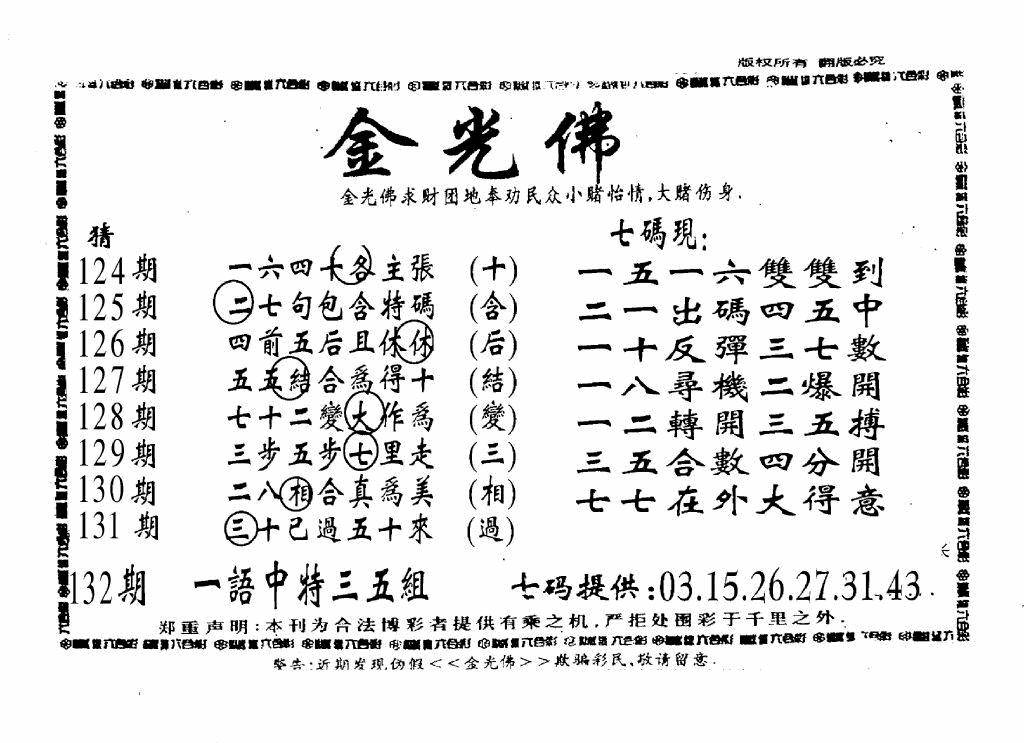 版权所有 翻版必究
金光佛
金光佛求财团地奉劝民众小赌怡情,大赌伤身.
猜
七碼現:
124期 一六四十各主張 (十) 一五一六雙雙到
125期 二七句包含特碼 (含) 二一出碼四五中
126期 四前五后且休休 (后) 一十反彈三七數
127期 五五結合為得十 (結) 一八尋機二爆開
128期 七十二變大作為 (變) 一二轉開三五搏
129期 三步五步七里走 (三) 三五合數四分開
130期 二八相合真為美 (相) 七七在外大得意
131期 三十已過五十來 (過)
132期 一語中特三五組 七码提供:03.15.26.27.31.43
郑重声明:本刊为合法博彩者提供有乘之机,严拒处围彩于千里之外.
警告:近期发现伪假<<金光佛>>欺骗彩民、敬请留意.